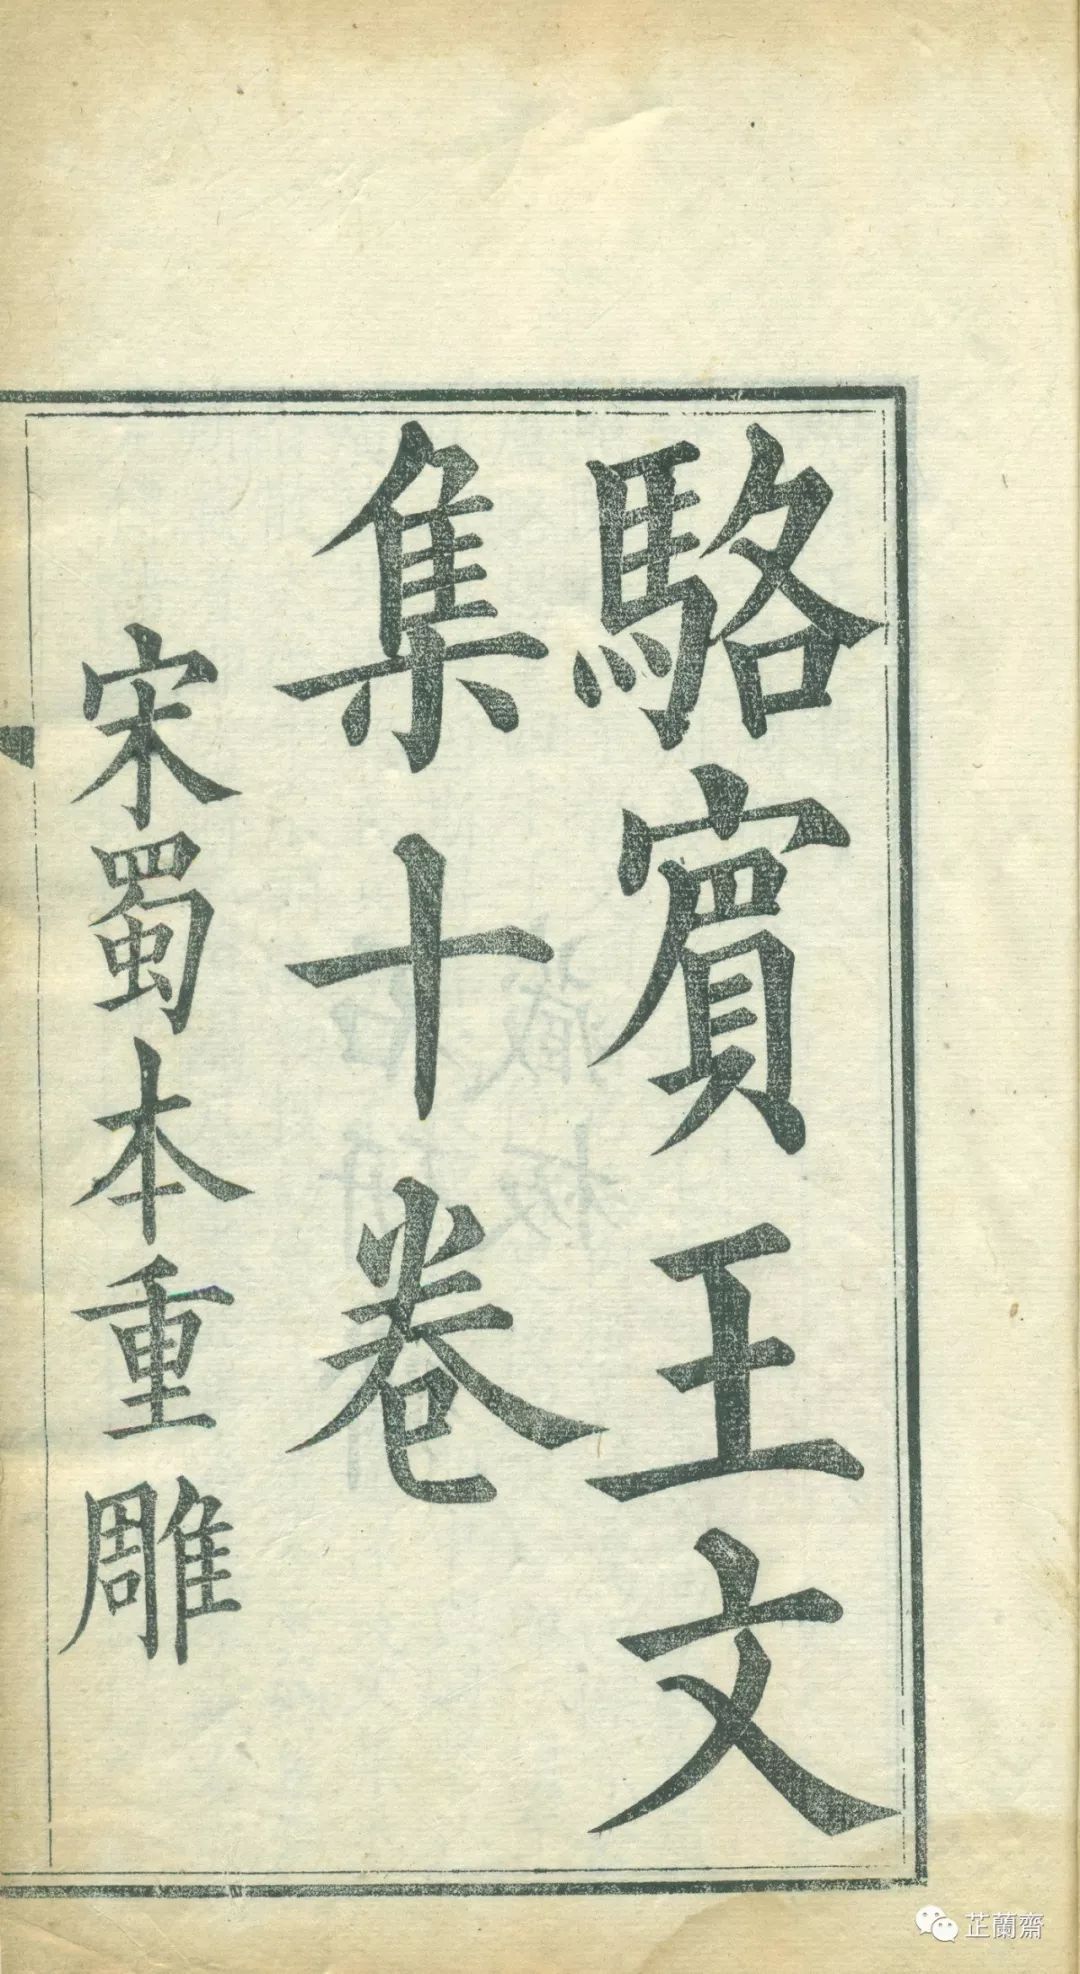 駱賓王文
集十卷
宋蜀本重雕
芷蘭齋